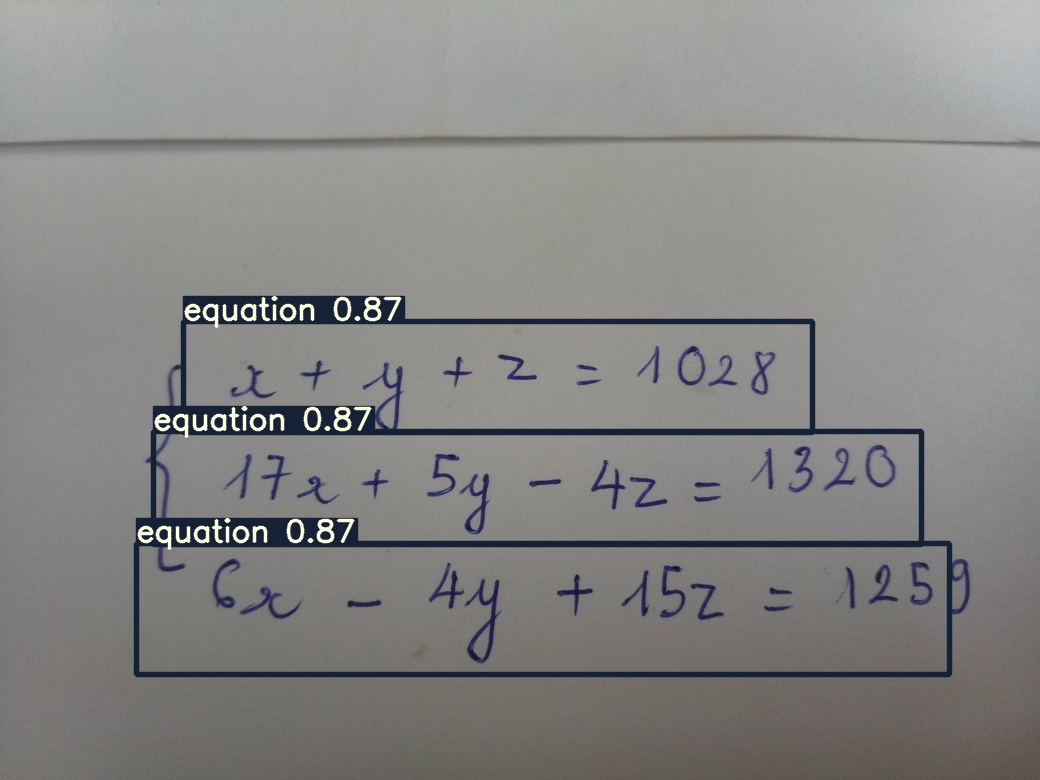 equation 0.87
x + y + z = 1028
equation 0.87
17x + 5y - 4z = 1320
equation 0.87
6x - 4y + 15z = 1259